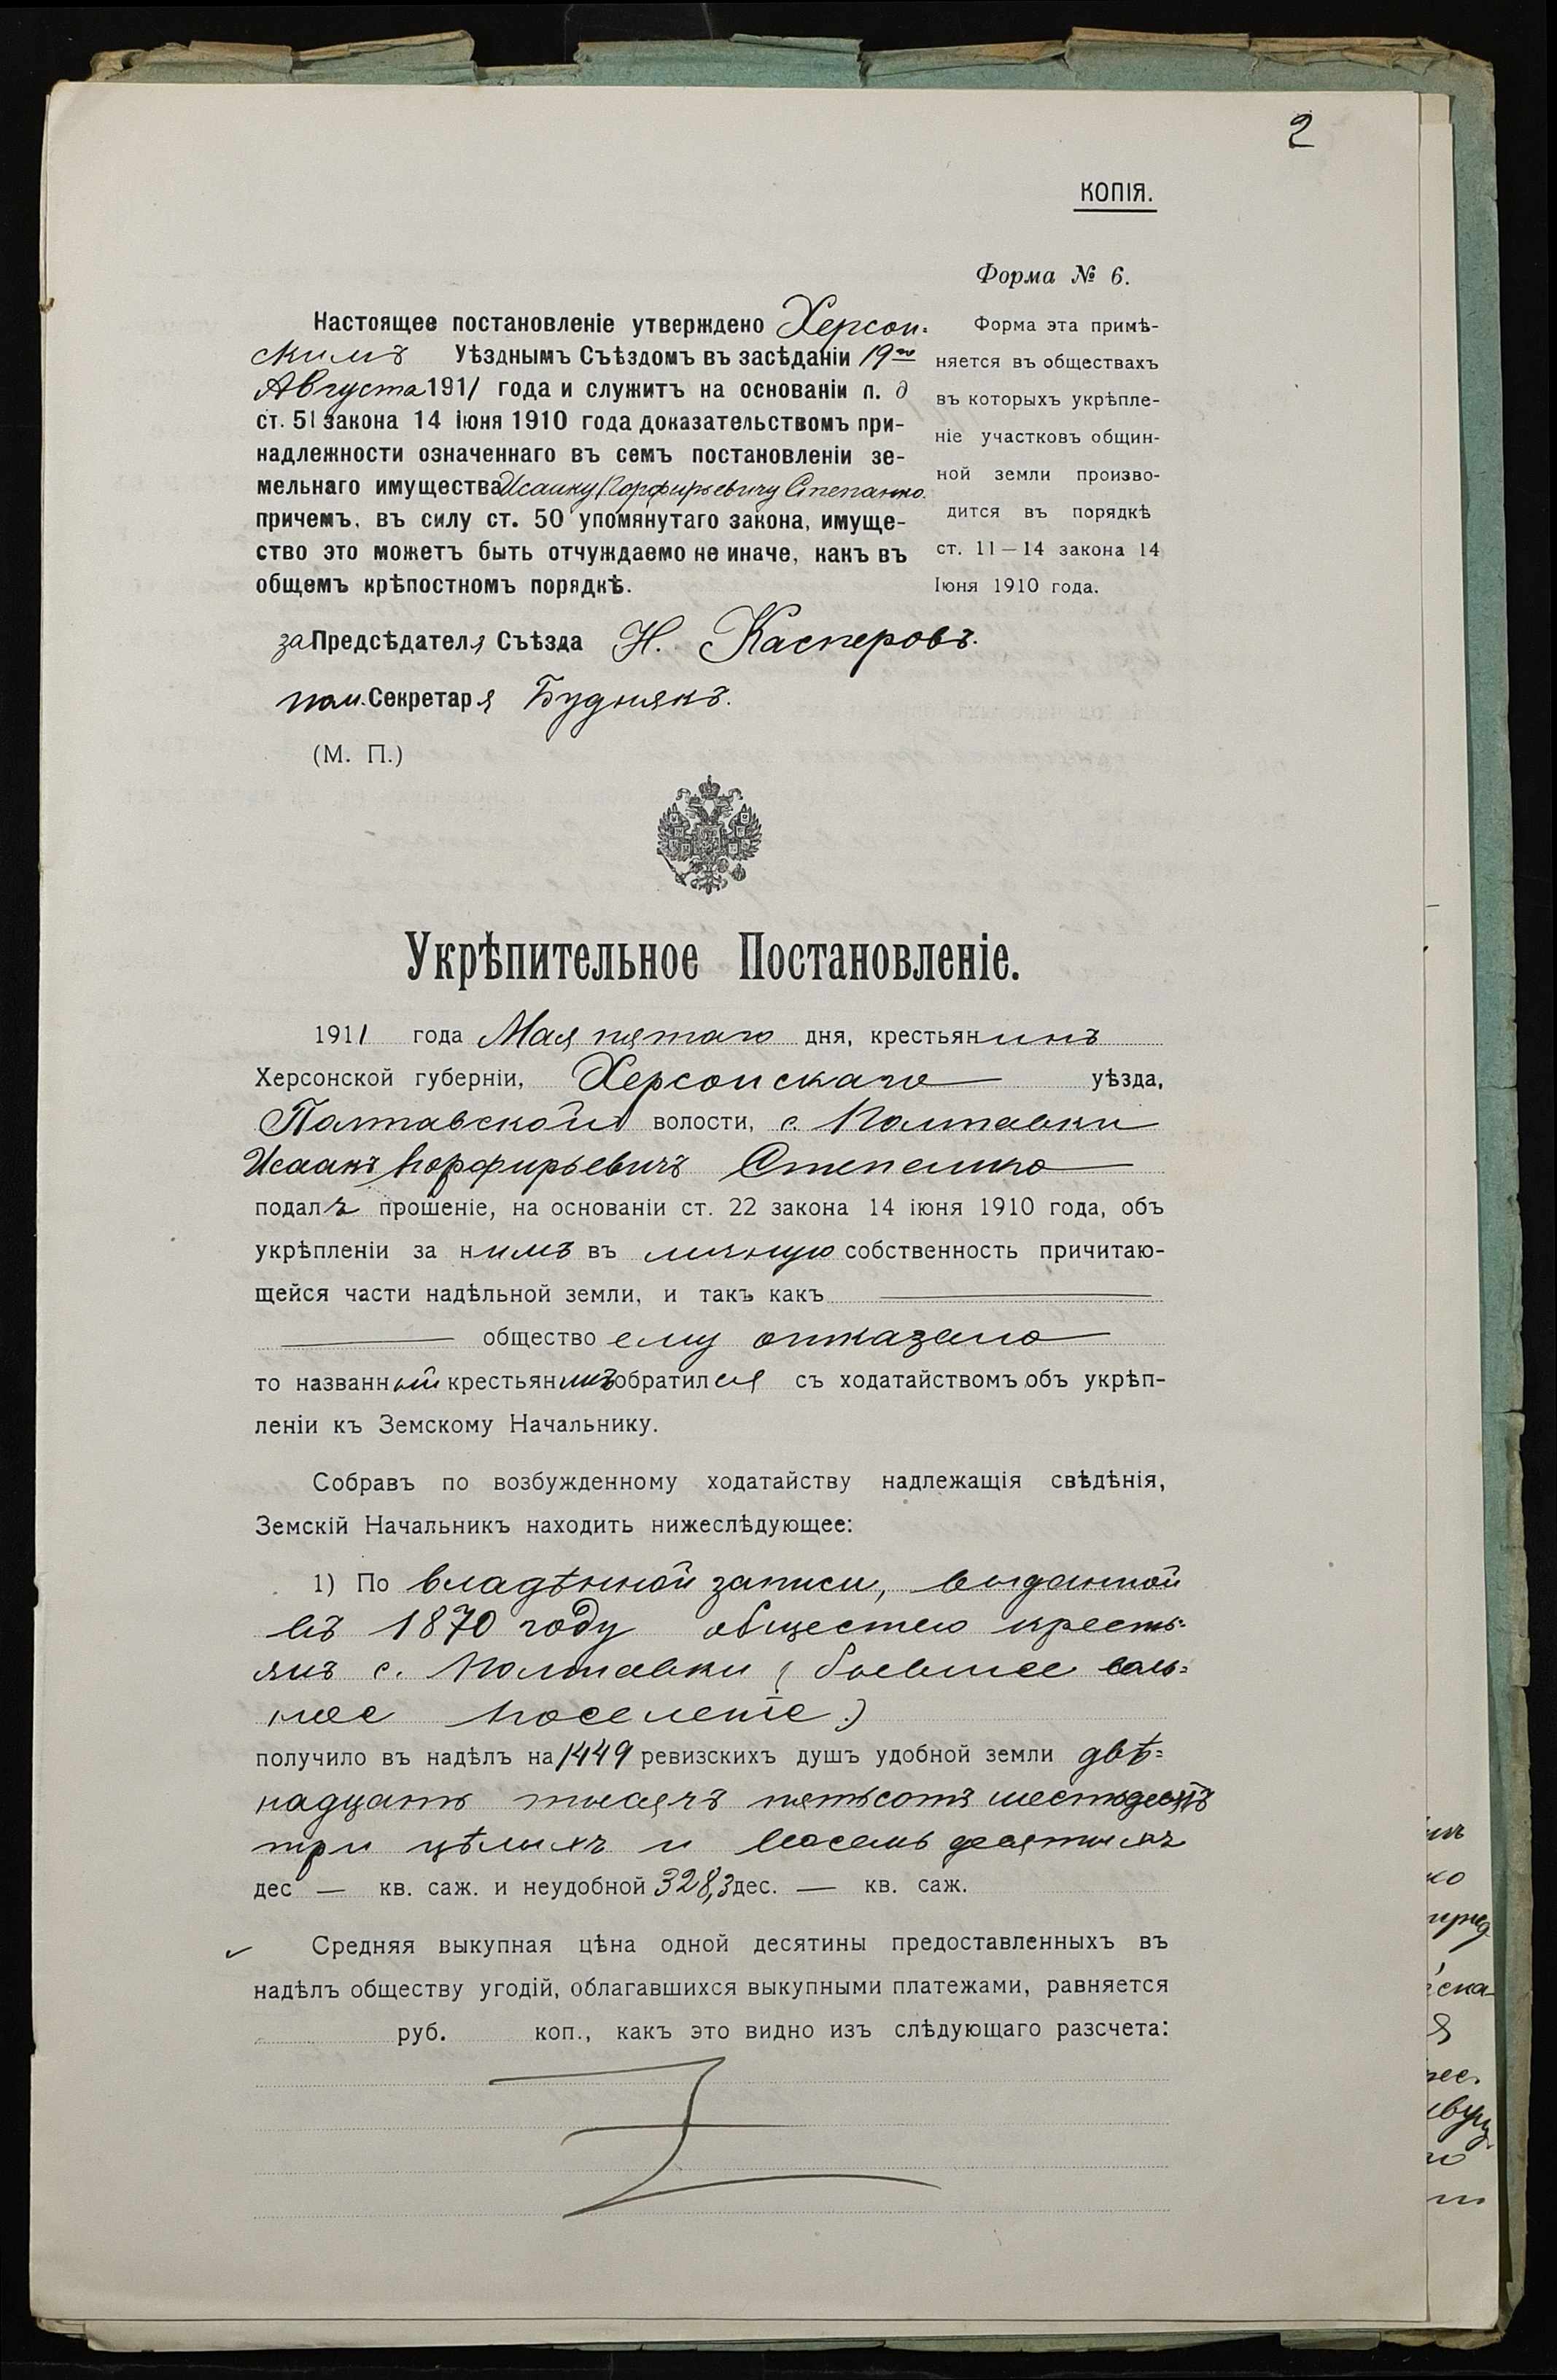 2
КОПІЯ.
Форма № 6.
Настоящее постановленіе утверждено Херсон-
скимъ Уѣзднымъ Съѣздомъ въ засѣданіи 19го
Августа 1911 года и служитъ на основаніи п. д
ст. 51 закона 14 іюня 1910 года доказательствомъ при-
надлежности означеннаго въ семъ постановленіи зе-
мельнаго имущества Исааку Порфирьевичу Степанко.
причемъ, въ силу ст. 50 упомянутаго закона, имуще-
ство это можетъ быть отчуждаемо не иначе, какъ въ
общемъ крѣпостномъ порядкѣ.
Форма эта примѣ-
няется въ обществахъ
въ которыхъ укрѣпле-
ніе участковъ общин-
ной земли произво-
дится въ порядкѣ
ст. 11—14 закона 14
Іюня 1910 года.
за Предсѣдателя Съѣзда Н. Касперовъ.
пом. Секретаря Буднякъ.
(М. П.)
Укрѣпительное Постановленіе.
1911 года Мая пятаго дня, крестьянинъ
Херсонской губерніи, Херсонскаго уѣзда,
Полтавской волости, с. Полтавки
Исаакъ Порфирьевичъ Степанко
подалъ прошеніе, на основаніи ст. 22 закона 14 іюня 1910 года, объ
укрѣпленіи за нимъ въ личную собственность причитаю-
щейся части надѣльной земли, и такъ какъ
общество ему отказало
то названный крестьянинъ обратился съ ходатайствомъ объ укрѣп-
леніи къ Земскому Начальнику.
Собравъ по возбужденному ходатайству надлежащія свѣдѣнія,
Земскій Начальникъ находитъ нижеслѣдующее:
1) По владѣнной записи, выданной
въ 1870 году общество кресть-
янъ с. Полтавки (бывшее воль-
ное поселеніе)
получило въ надѣлъ на 1449 ревизскихъ душъ удобной земли двѣ-
надцать тысячъ пятьсотъ шестьдесятъ
три цѣлыхъ и восемь десятыхъ
дес — кв. саж. и неудобной 328,3 дес. — кв. саж.
Средняя выкупная цѣна одной десятины предоставленныхъ въ
надѣлъ обществу угодій, облагавшихся выкупными платежами, равняется
руб. коп., какъ это видно изъ слѣдующаго разсчета: